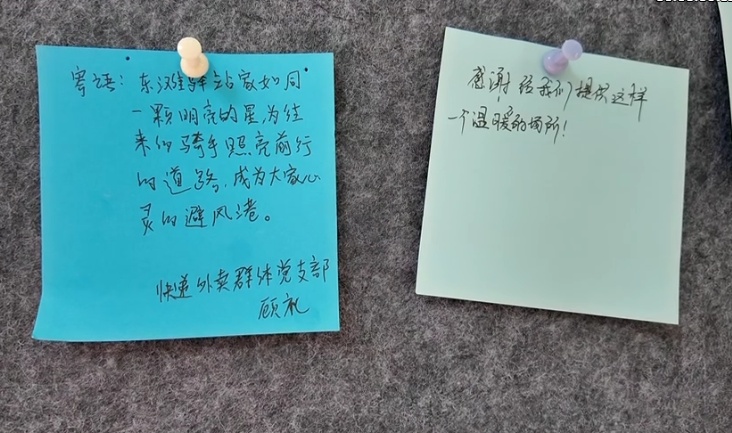 寄语：东滩驿站家如同
一颗明亮的星，为往
来的骑手照亮前行
的道路，成为大家心
灵的避风港。
快递外卖群体党支部
顾礼
感谢给我们提供这样
一个温暖的场所！